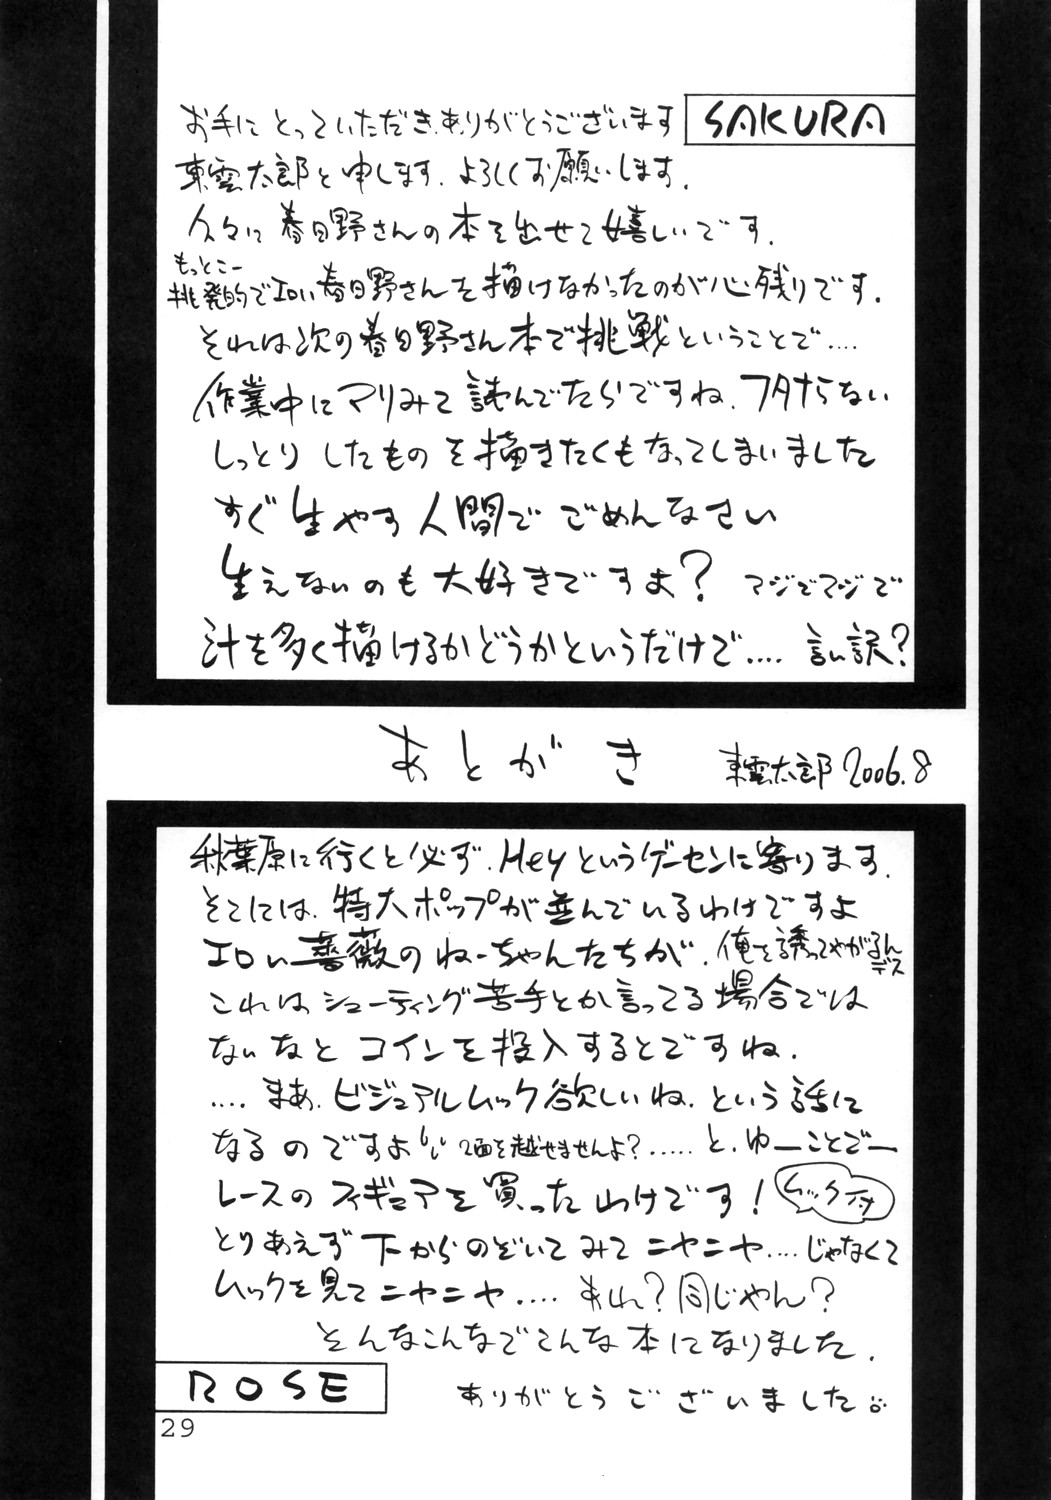 SAKURA
お手にとっていただき、ありがとうございます
東雲太郎と申します。よろしくお願いします。
久々に春日野さんの本を出せて嬉しいです。
もっとこー
挑発的でエロい春日野さんを描けなかったのが心残りです。
それは次の春日野さん本で挑戦ということで‥‥
作業中にマリみて読んでたらですね、フタナらない
しっとりしたものを描きたくもなってしまいました
すぐ生やす人間でごめんなさい
生えないのも大好きですよ? マジでマジで
汁を多く描けるかどうかというだけで‥‥ 言い訳?
あとがき 東雲太郎 2006.8
秋葉原に行くと必ず、Heyというゲーセンに寄ります。
そこには、特大ポップが並んでいるわけですよ
エロい薔薇のねーちゃんたちが、俺を誘ってやがるん
デス
これはシューティング苦手とか言ってる場合では
ないなとコインを投入するとですね、
‥‥まあ、ビジュアルムック欲しいね、という話に
なるのですよ 2面を越せませんよ?‥‥‥と、ゆーことでー
レースのフィギュアを買ったわけです! ムック付
とりあえず下からのぞいてみてニヤニヤ‥‥じゃなくて
ムックを見てニヤニヤ‥‥あれ?同じやん?
そんなこんなでこんな本になりました。
ありがとうございました
ROSE
29